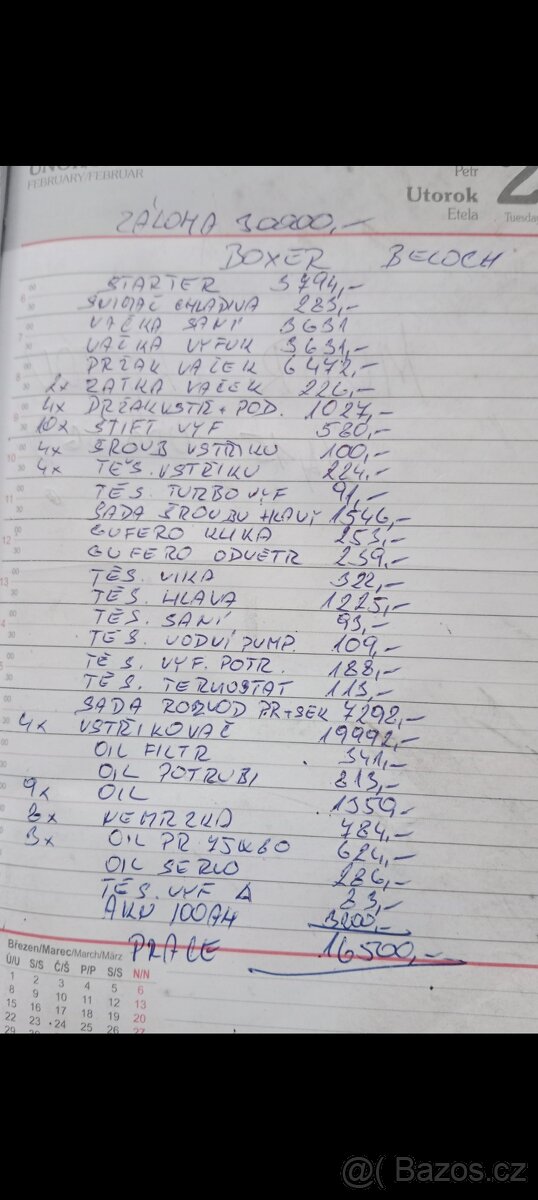 ÚNOR
FEBRUARY/FEBRUAR
Petr
Utorok
Etela
2
Tuesday
ZÁLOHA 30000,-
BOXER BELOCH
STARTER 3794,-
SNÍMAČ CHLADIVA 283,-
VAČKA SANÍ 3631
VAČKA VYFUK 3631,-
PRŽAK VAČEK 6472,-
2x ZATKA VAČEK 226,-
4x DRŽAK VSTŘ + POD. 1027,-
10x ŠTIFT VYF 580,-
4x ŠROUB VSTŘIKU 100,-
4x TĚS. VSTŘIKU 224,-
TĚS. TURBO VYF 91,-
SADA ŠROUBU HLAVY 1546,-
GUFERO KLIKA 253,-
GUFERO ODVETR 239,-
TĚS. VIKA 322,-
TĚS. HLAVA 1225,-
TĚS. SANÍ 93,-
TĚS. VODNÍ PUMP. 109,-
TĚS. VYF. POTR. 188,-
TĚS. TERMOSTAT 113,-
SADA ROZVOD PR+SEK 7292,-
4x VSTŘIKOVAČ 19992,-
OIL FILTR 341,-
OIL POTRUBI 813,-
9x OIL 1359-
8x NEMRZKA 784,-
3x OIL PR 75W80 624,-
OIL SERVO 286,-
TĚS. VYF Δ 83,-
AKU 100AH 3200,-
PRACE 16500,-
Březen/Marec/March/März
Ú/U S/S Č/Š P/P S/S N/N
1 2 3 4 5 6
8 9 10 11 12 13
15 16 17 18 19 20
22 23 24 25 26 27
29 30
@( Bazos.cz